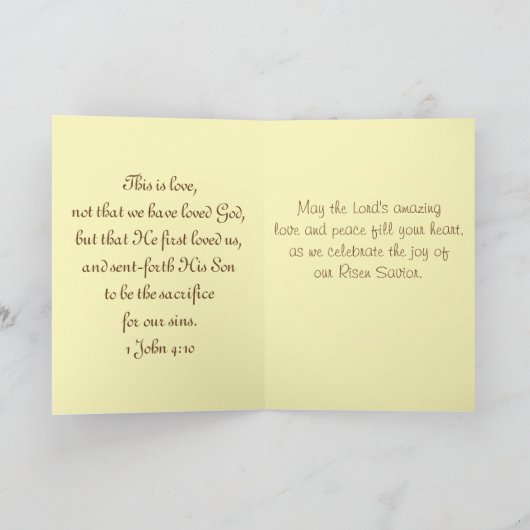 This is love,
not that we have loved God,
but that He first loved us,
and sent-forth His Son
to be the sacrifice
for our sins.
1 John 4:10
May the Lord's amazing
love and peace fill your heart,
as we celebrate the joy of
our Risen Savior.